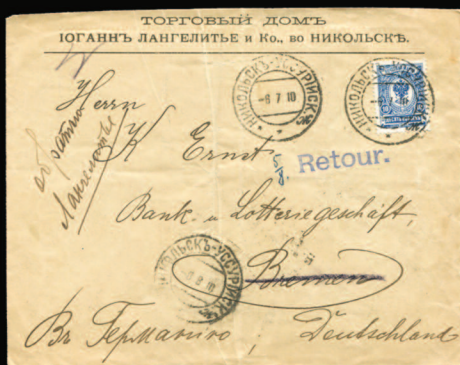 ТОРГОВЫЙ ДОМЪ
ІОГАННЪ ЛАНГЕЛИТЬЕ и Ко., во НИКОЛЬСКѢ.
НИКОЛЬСКЪ-УССУРІЙСК.
-8 7 10
НИКОЛЬСКЪ-УССУРІЙСК.
Herrn
обратно
Лангелитье
K Ernst
5/8.
Retour.
Bank- u Lotteriegeschäft,
НИКОЛЬСКЪ-УССУРІЙСК.
8 8 10
Bremen
Въ Германію ; Deutschland